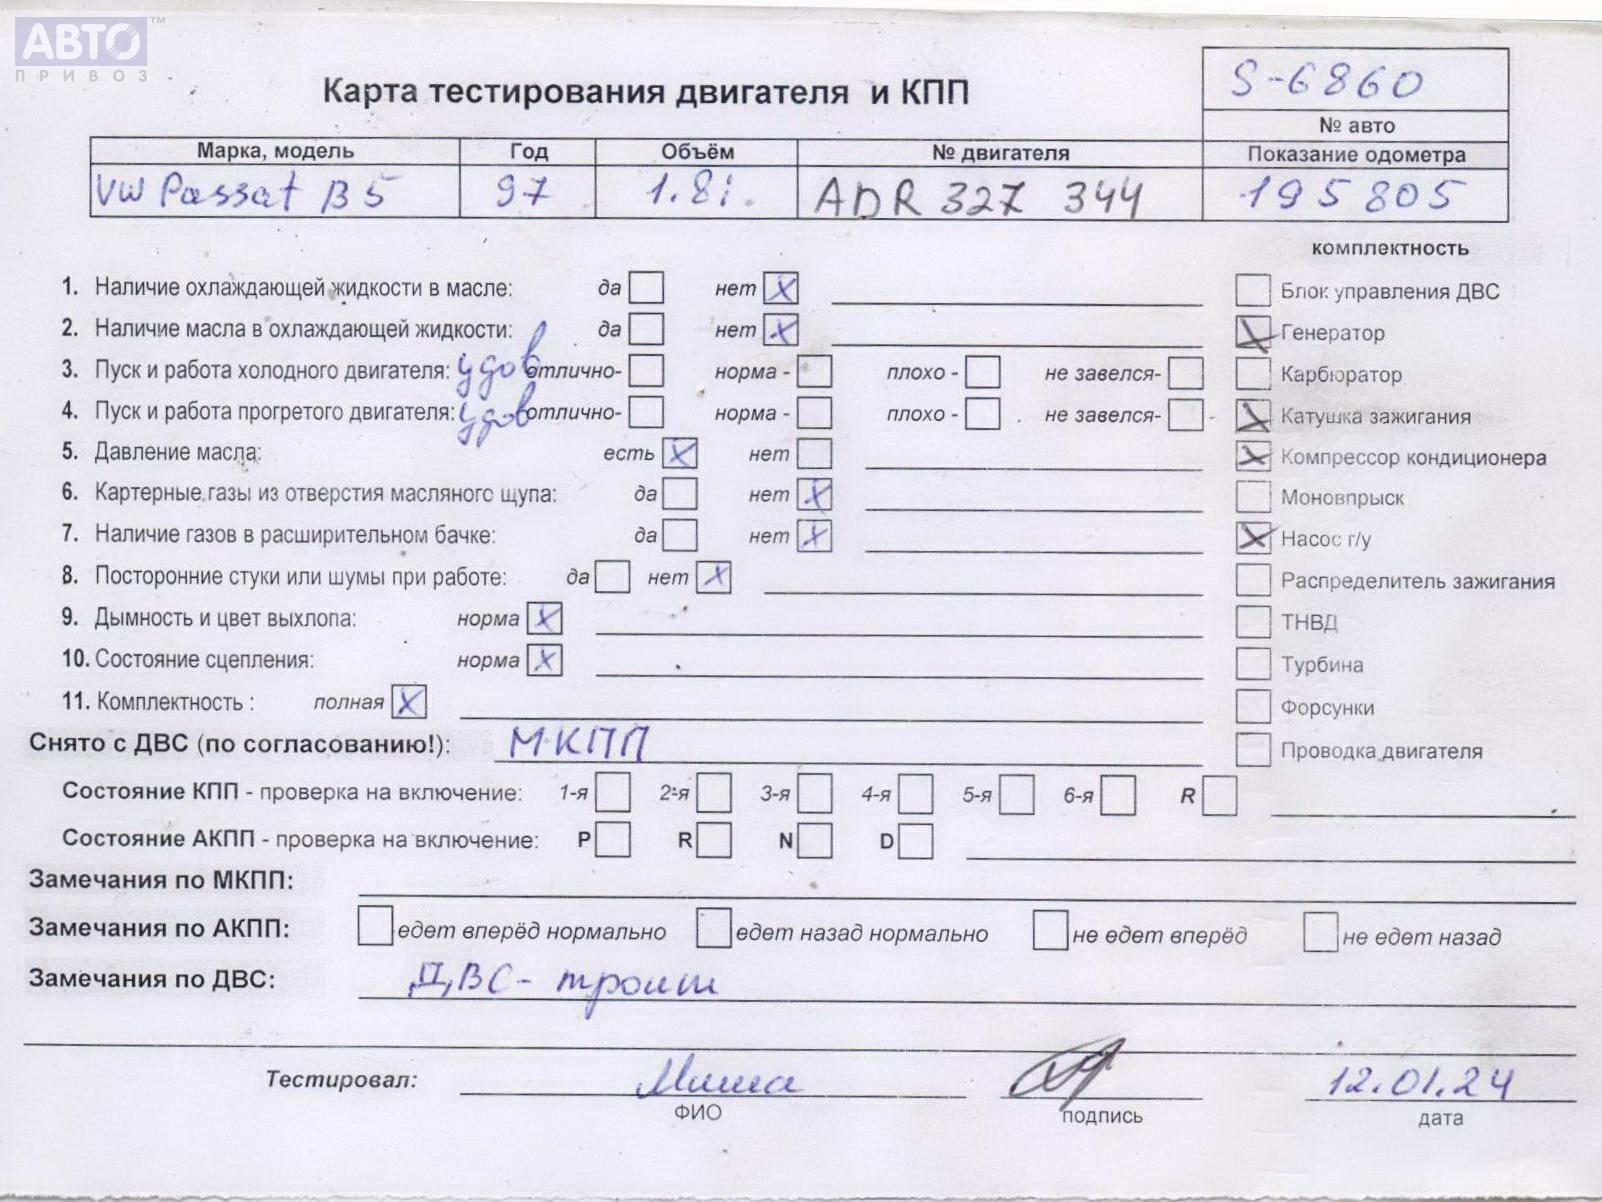 АВТО™
ПРИВОЗ
S-6860
Карта тестирования двигателя и КПП
№ авто
Марка, модель Год Объём № двигателя Показание одометра
VW Passat B5 97 1.8i. ADR 327 344 195805
комплектность
1. Наличие охлаждающей жидкости в масле: да нет X Блок управления ДВС
2. Наличие масла в охлаждающей жидкости: да нет X X Генератор
3. Пуск и работа холодного двигателя: удов отлично- норма - плохо - не завелся- Карбюратор
4. Пуск и работа прогретого двигателя: удов отлично- норма - плохо - не завелся- X Катушка зажигания
5. Давление масла: есть X нет X Компрессор кондиционера
6. Картерные газы из отверстия масляного щупа: да нет X Моновпрыск
7. Наличие газов в расширительном бачке: да нет X X Насос г/у
8. Посторонние стуки или шумы при работе: да нет X Распределитель зажигания
9. Дымность и цвет выхлопа: норма X ТНВД
10. Состояние сцепления: норма X Турбина
11. Комплектность : полная X Форсунки
Снято с ДВС (по согласованию!): МКПП Проводка двигателя
Состояние КПП - проверка на включение: 1-я 2-я 3-я 4-я 5-я 6-я R
Состояние АКПП - проверка на включение: P R N D
Замечания по МКПП:
Замечания по АКПП: едет вперёд нормально едет назад нормально не едет вперёд не едет назад
Замечания по ДВС: ДВС - троит
Тестировал: Миша 12.01.24
ФИО подпись дата